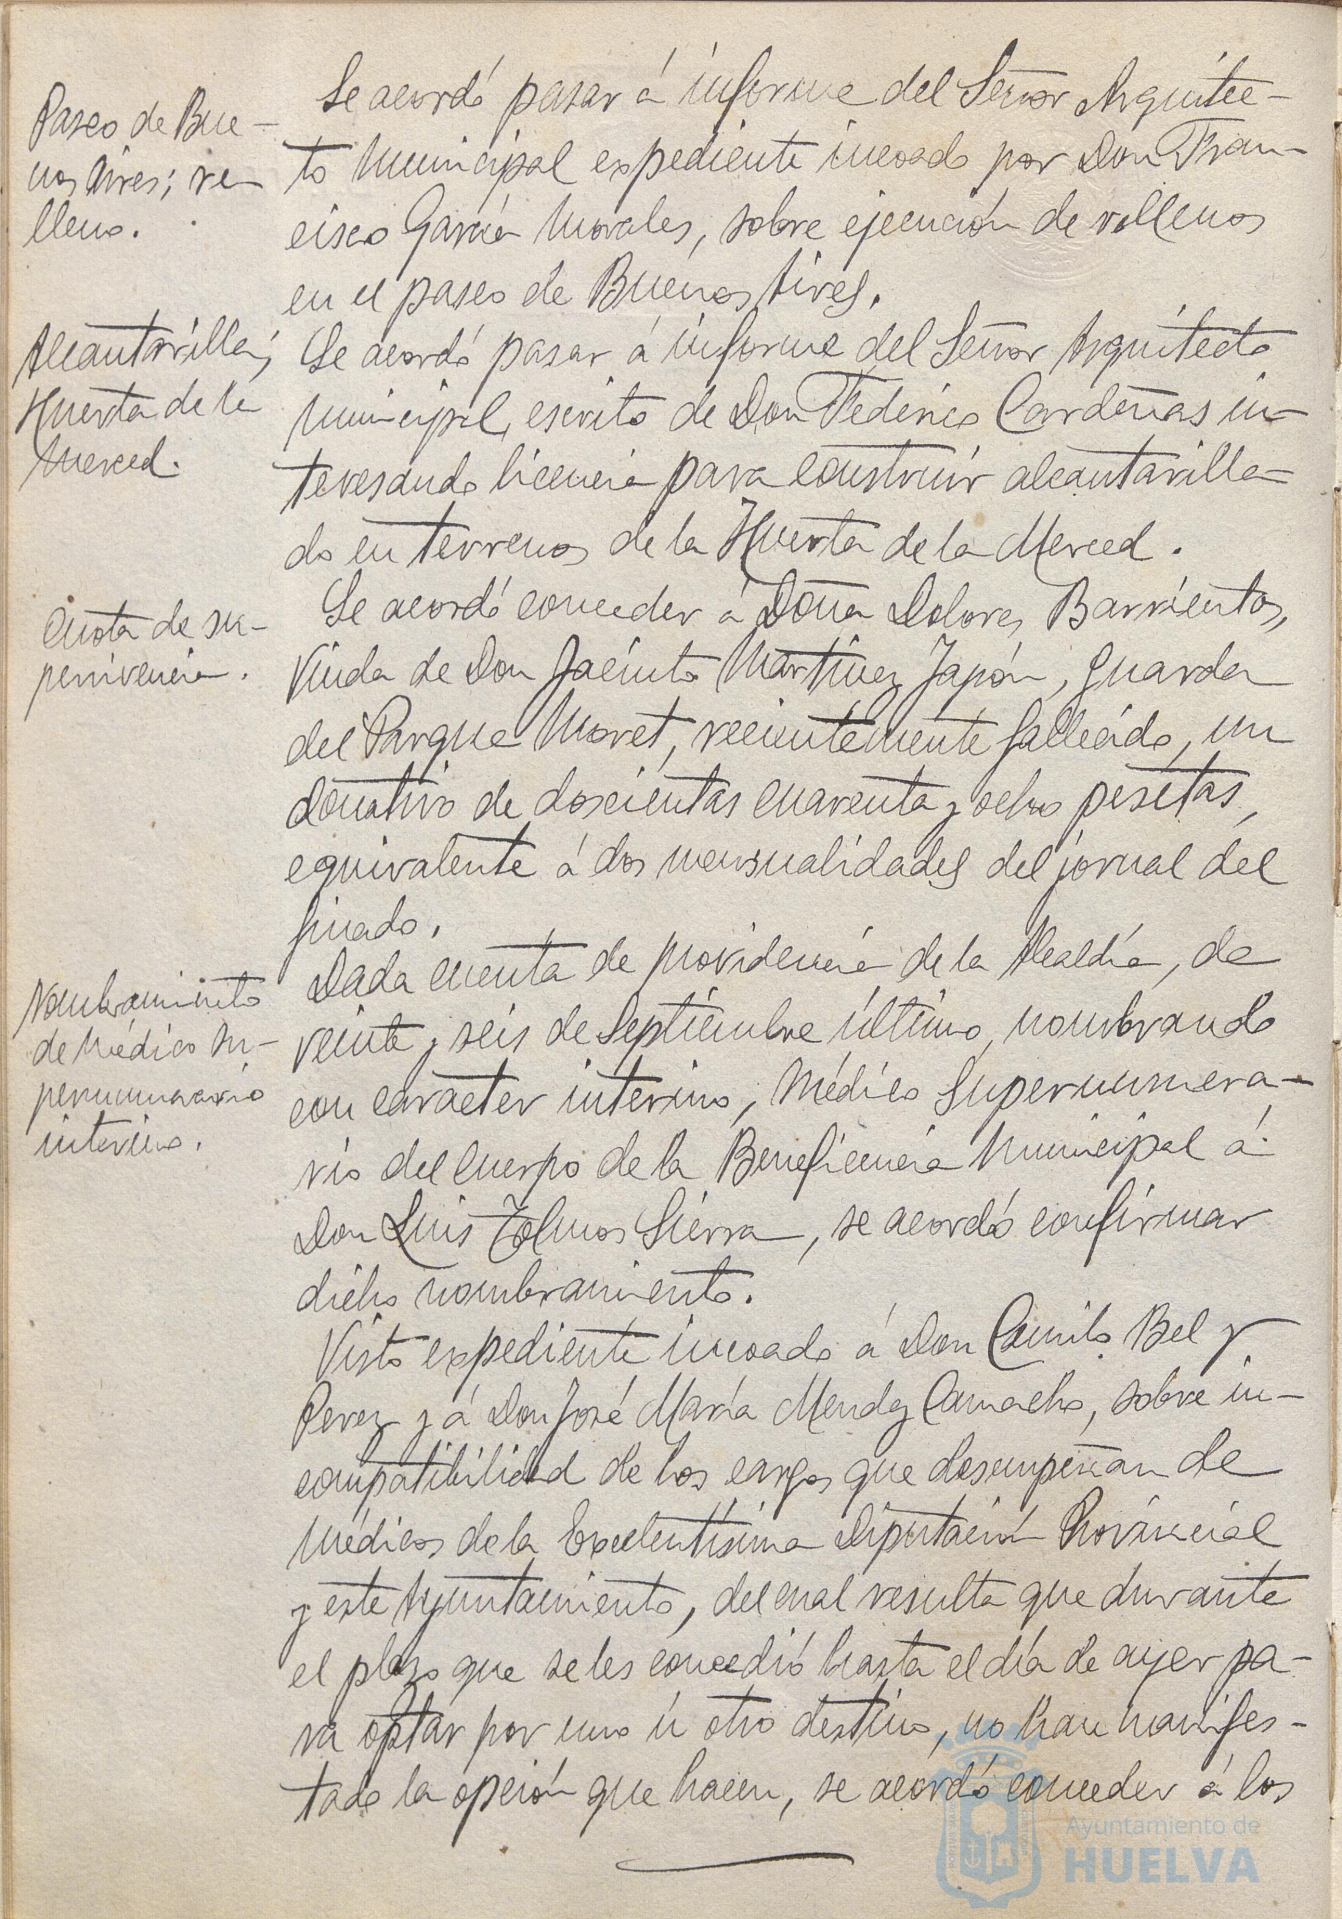 Paseo de Bue-
nos Aires; re-
lleno.
Se acordó pasar á informe del Señor Arquitec-
to Municipal expediente incoado por Don Fran-
cisco García Morales, sobre ejecución de rellenos
en el paseo de Buenos Aires.
Alcantarilla;
Huerta de la
Merced.
Se acordó pasar á informe del Señor Arquitecto
Municipal, escrito de Don Federico Cardeñas in-
teresando licencia para construir alcantarilla-
do en terrenos de la Huerta de la Merced.
Cuota de su-
pervivencia.
Se acordó conceder á Doña Dolores Barrientos,
Viuda de Don Jacinto Martinez Japón, guarda
del Parque Moret, recientemente fallecido, un
donativo de doscientas cuarenta y ocho pesetas,
equivalente á dos mensualidades del jornal del
finado.
Nombramiento
de Médico Su-
pernumerario
interino.
Dada cuenta de providencia de la Alcaldía, de
veinte y seis de Septiembre último, nombrando
con caracter interino, Médico Supernumera-
rio del Cuerpo de la Beneficencia Municipal á
Don Luis Sierra, se acordó confirmar
dicho nombramiento.
Visto expediente incoado á Don Camilo Bel y
Perez y á Don José María Mendez Camacho, sobre in-
compatibilidad de los cargos que desempeñan de
Médicos de la Excelentísima Diputación Provincial
y este Ayuntamiento, del cual resulta que durante
el plazo que se les concedió hasta el día de ayer pa-
ra optar por uno ú otro destino, no han manifes-
tado la opción que hacen, se acordó conceder á los
Ayuntamiento de
HUELVA